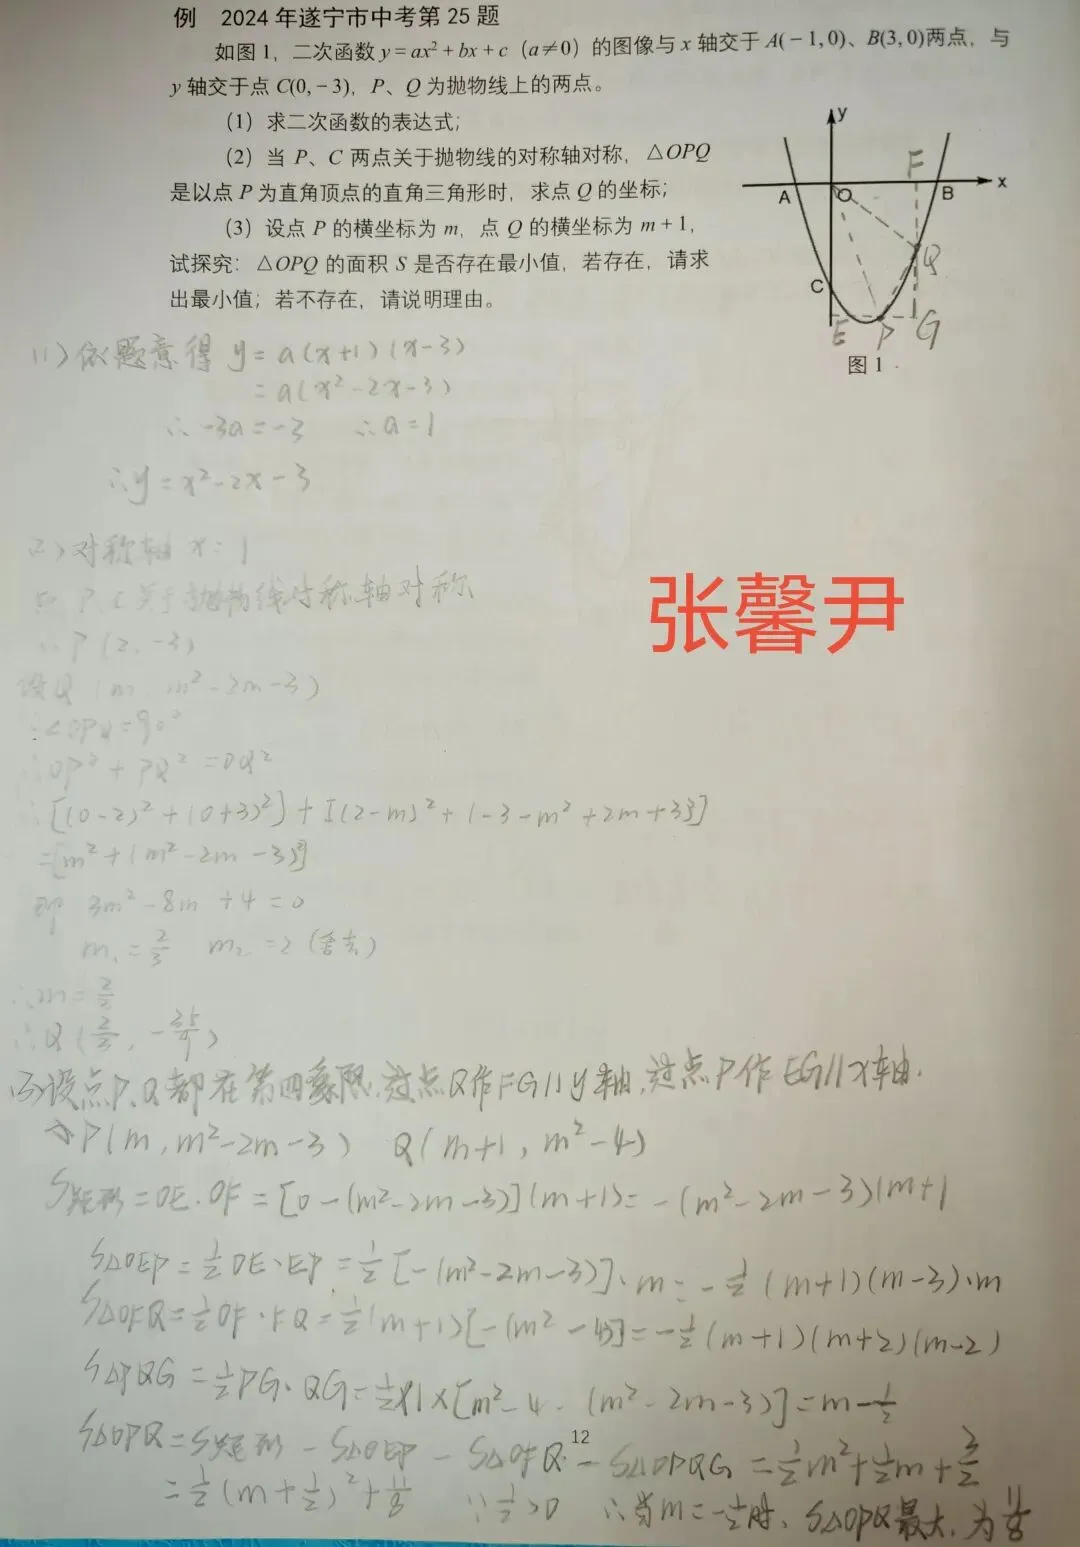 例 2024年遂宁市中考第25题
如图1，二次函数y=ax²+bx+c（a≠0）的图像与x轴交于A(-1,0)、B(3,0)两点，与
y轴交于点C(0,-3)，P、Q为抛物线上的两点。
（1）求二次函数的表达式；
（2）当P、C两点关于抛物线的对称轴对称，△OPQ
是以点P为直角顶点的直角三角形时，求点Q的坐标；
（3）设点P的横坐标为m，点Q的横坐标为m+1，
试探究：△OPQ的面积S是否存在最小值，若存在，请求
出最小值；若不存在，请说明理由。
y
F
A O B x
Q
C
E P G
图1
(1)依题意得 y=a(x+1)(x-3)
=a(x²-2x-3)
∴-3a=-3 ∴a=1
∴y=x²-2x-3
张馨尹
(2)对称轴 x=1
P C关于抛物线对称轴对称
∴P(2,-3)
设Q(m, m²-2m-3)
∵∠OPQ=90°
∴OP²+PQ²=OQ²
∴[(0-2)²+(0+3)²]+[(2-m)²+(-3-m²+2m+3)]
=[m²+(m²-2m-3)²]
即 3m²-8m+4=0
m₁=2/3 m₂=2(舍去)
∴m=2/3
∴Q(2/3, -35/9)
(3)设点P、Q都在第四象限,过点Q作FG∥y轴,过点P作EG∥x轴.
P(m, m²-2m-3) Q(m+1, m²-4)
S矩形=OE·OF=[0-(m²-2m-3)](m+1)=-(m²-2m-3)(m+1
S△OEP=1/2OE·EP=1/2[-(m²-2m-3)]·m=-1/2(m+1)(m-3)·m
S△OFQ=1/2OF·FQ=1/2(m+1)[-(m²-4)]=-1/2(m+1)(m+2)(m-2)
S△PQG=1/2PG·QG=1/2×1×[m²-4-(m²-2m-3)]=m-1/2
S△OPQ=S矩形-S△OEP-S△OFQ-S△PQG=1/2m²+1/2m+3/2
=1/2(m+1/2)²+11/8 ∵1/2>0 ∴当m=-1/2时、S△OPQ最大,为11/8
12